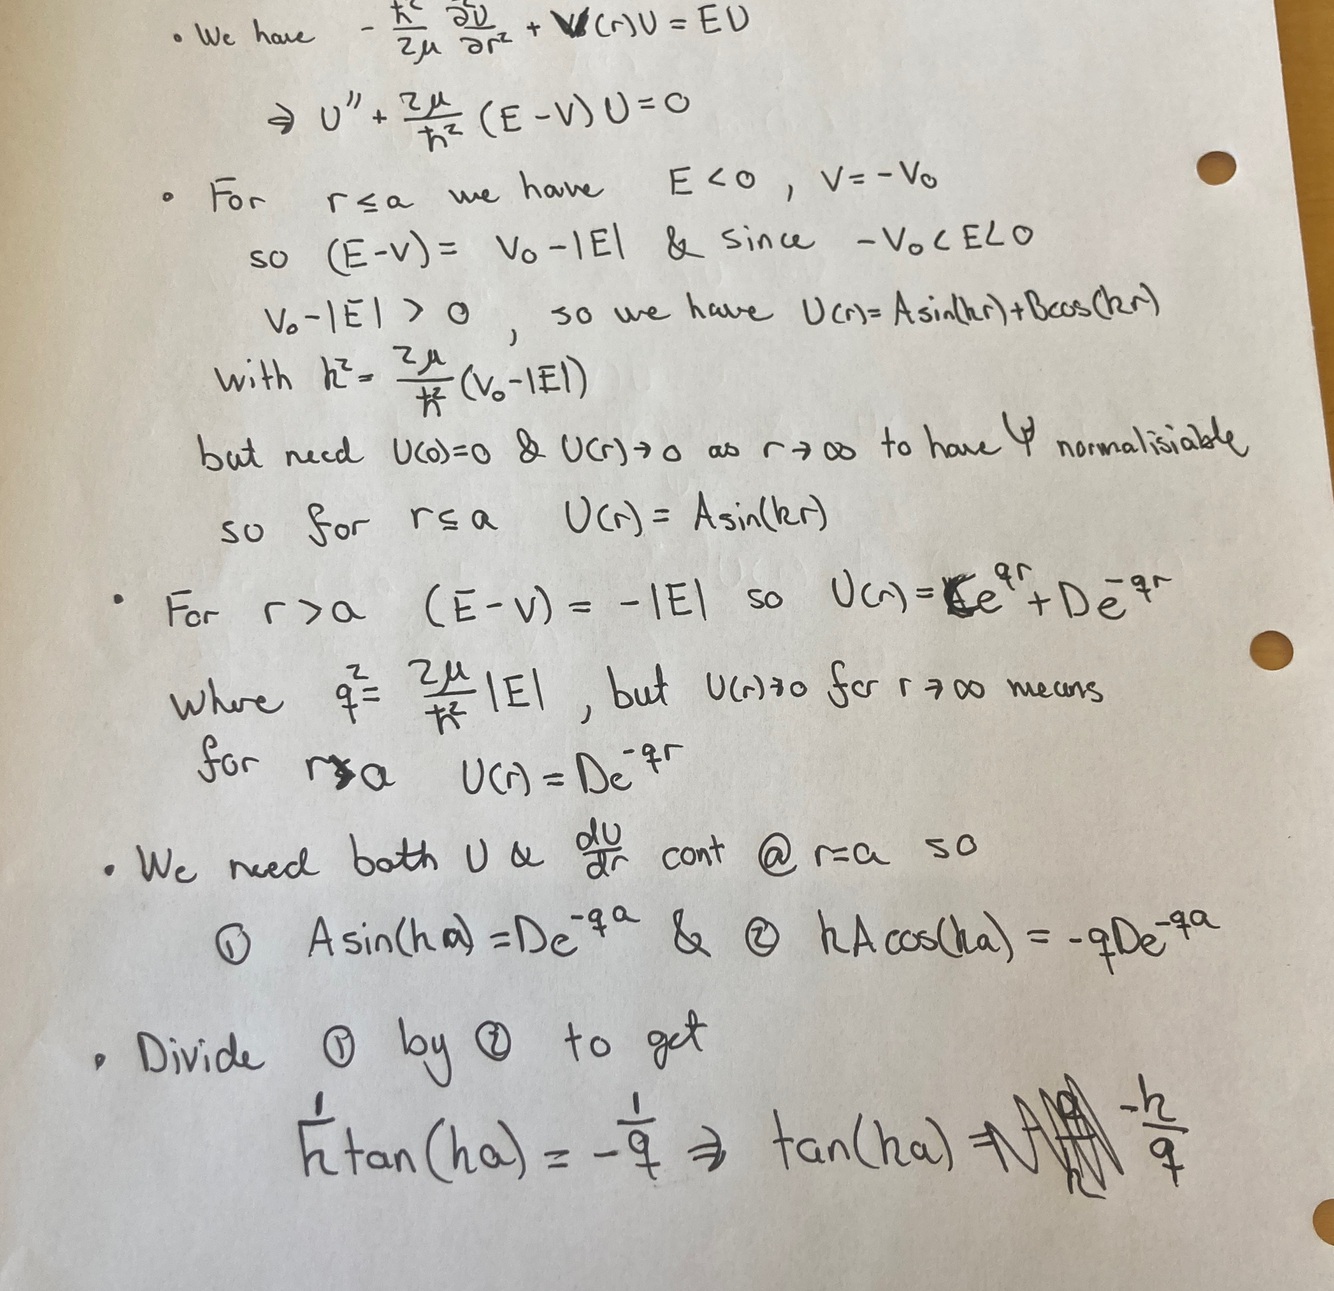 • We have - ħ²/2μ ∂U/∂r² + V(r)U = EU
⇒ U'' + 2μ/ħ² (E - V) U = 0
• For r ≤ a we have E < 0 , V = - V₀
so (E-V) = V₀ - |E| & since - V₀ < E < 0
V₀ - |E| > 0 , so we have U(r) = A sin(kr) + B cos(kr)
with k² = 2μ/ħ² (V₀ - |E|)
but need U(0)=0 & U(r)→0 as r→∞ to have Ψ normalisiable
so for r ≤ a U(r) = A sin(kr)
• For r > a (E - V) = - |E| so U(r) = Ce^{qr} + De^{-qr}
where q² = 2μ/ħ² |E| , but U(r)→0 for r→∞ means
for r > a U(r) = De^{-qr}
• We need both U & dU/dr cont @ r=a so
① A sin(ka) = De^{-qa} & ② kA cos(ka) = -qDe^{-qa}
• Divide ① by ② to get
1/k tan(ka) = - 1/q ⇒ tan(ka) = -k/q